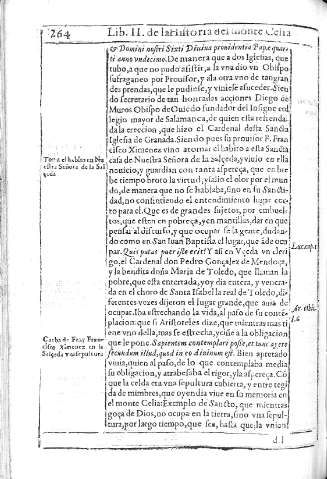 264 Lib. II. de la Historia del monte Celia
& Domini nostri Sixti Divina providentia Papæ quar-
ti anno undecimo. De manera que a dos Iglesias, que
tubo, a que no pudo asistir, a la una dio un Obispo
sufraganeo por Provisor, y a la otra uno de tan gran-
des prendas, que le pudiese, y viniese a suceder. Sien-
do secretario de tan honrados acciones Diego de
Muros Obispo de Oviedo fundador del insigne col
legio mayor de Salamanca, de quien esta refrenda-
da la ereccion, que hizo el Cardenal desta Sancta
Iglesia de Granada. Siendo pues su provisor F. Fran
cisco Ximenez vino a tomar el habito a esta Sancta
casa de Nuestra Señora de la Salçeda, y vivio en ella
noticia, y guardian con tanta aspereça, que en bre
be tiempo broto la virtud, y salio el olor por el mun-
do, de manera que no se hablaba, sino en su Sancti-
dad, no consintiendo el entendimiento lugar cor-
to para el. Que es de grandes sujetos, por embuel-
tos, que esten en pobreça, y en mantillas, dar en que
pensar al discurso, y que ocupar se la gente, dudan-
do como en San Juan Baptista el lugar, que á de ocu
par. Quis putas puer iste erit? Y asi en Uçeda un cleri-
go, el Cardenal don Pedro Gonçales de Mendoça,
y la bendita doña Maria de Toledo, que llaman la
pobre, que esta enterrada, y oy dia entera, y venera-
da en el choro de Santa Isabel la real de Toledo, di-
ferentes veces dijeron el lugar grande, que auia de
ocupar. Iba estrechando la vida, al paso de su conte-
placion: que si Aristoteles dize, que mientras mas ti
ene uno della, mas se estrecha, y ciñe a la obligacion
que le pone. Sapientem contemplari posse, et tunc agere
secundum illud, quod in eo divinum est. Bien apretado
viuia, quien al paso, de lo que contemplaba media
su obligacion, y atrabesaba el rigor, y la aspereça. Có
que la celda era una sepultura cubierta, y entre tegi
da de mimbres, que oy en dia viue en su memoria en
el monte Celia: Exemplo de Sancto, que mientras
goça de Dios, no ocupa en la tierra, sino una sepul-
tura, por largo tiempo, que sea, hasta que la union
d.l
Toma el habito en Nu
estra Señora de la Sal
çeda
Cueba de Fray Fran-
cisco Ximenez en la
Salçeda y su sepultura